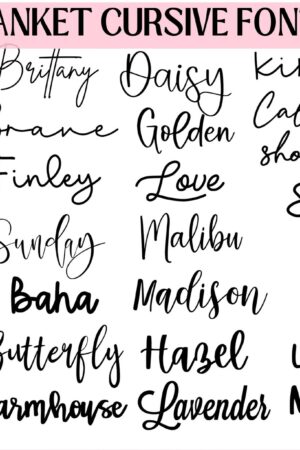 ANKET CURSIVE FON
Brittany Daisy Ki
rane Golden Cal
Finley Love sho
Sunday Malibu
Baha Madison
Butterfly Hazel
armhouse Lavender